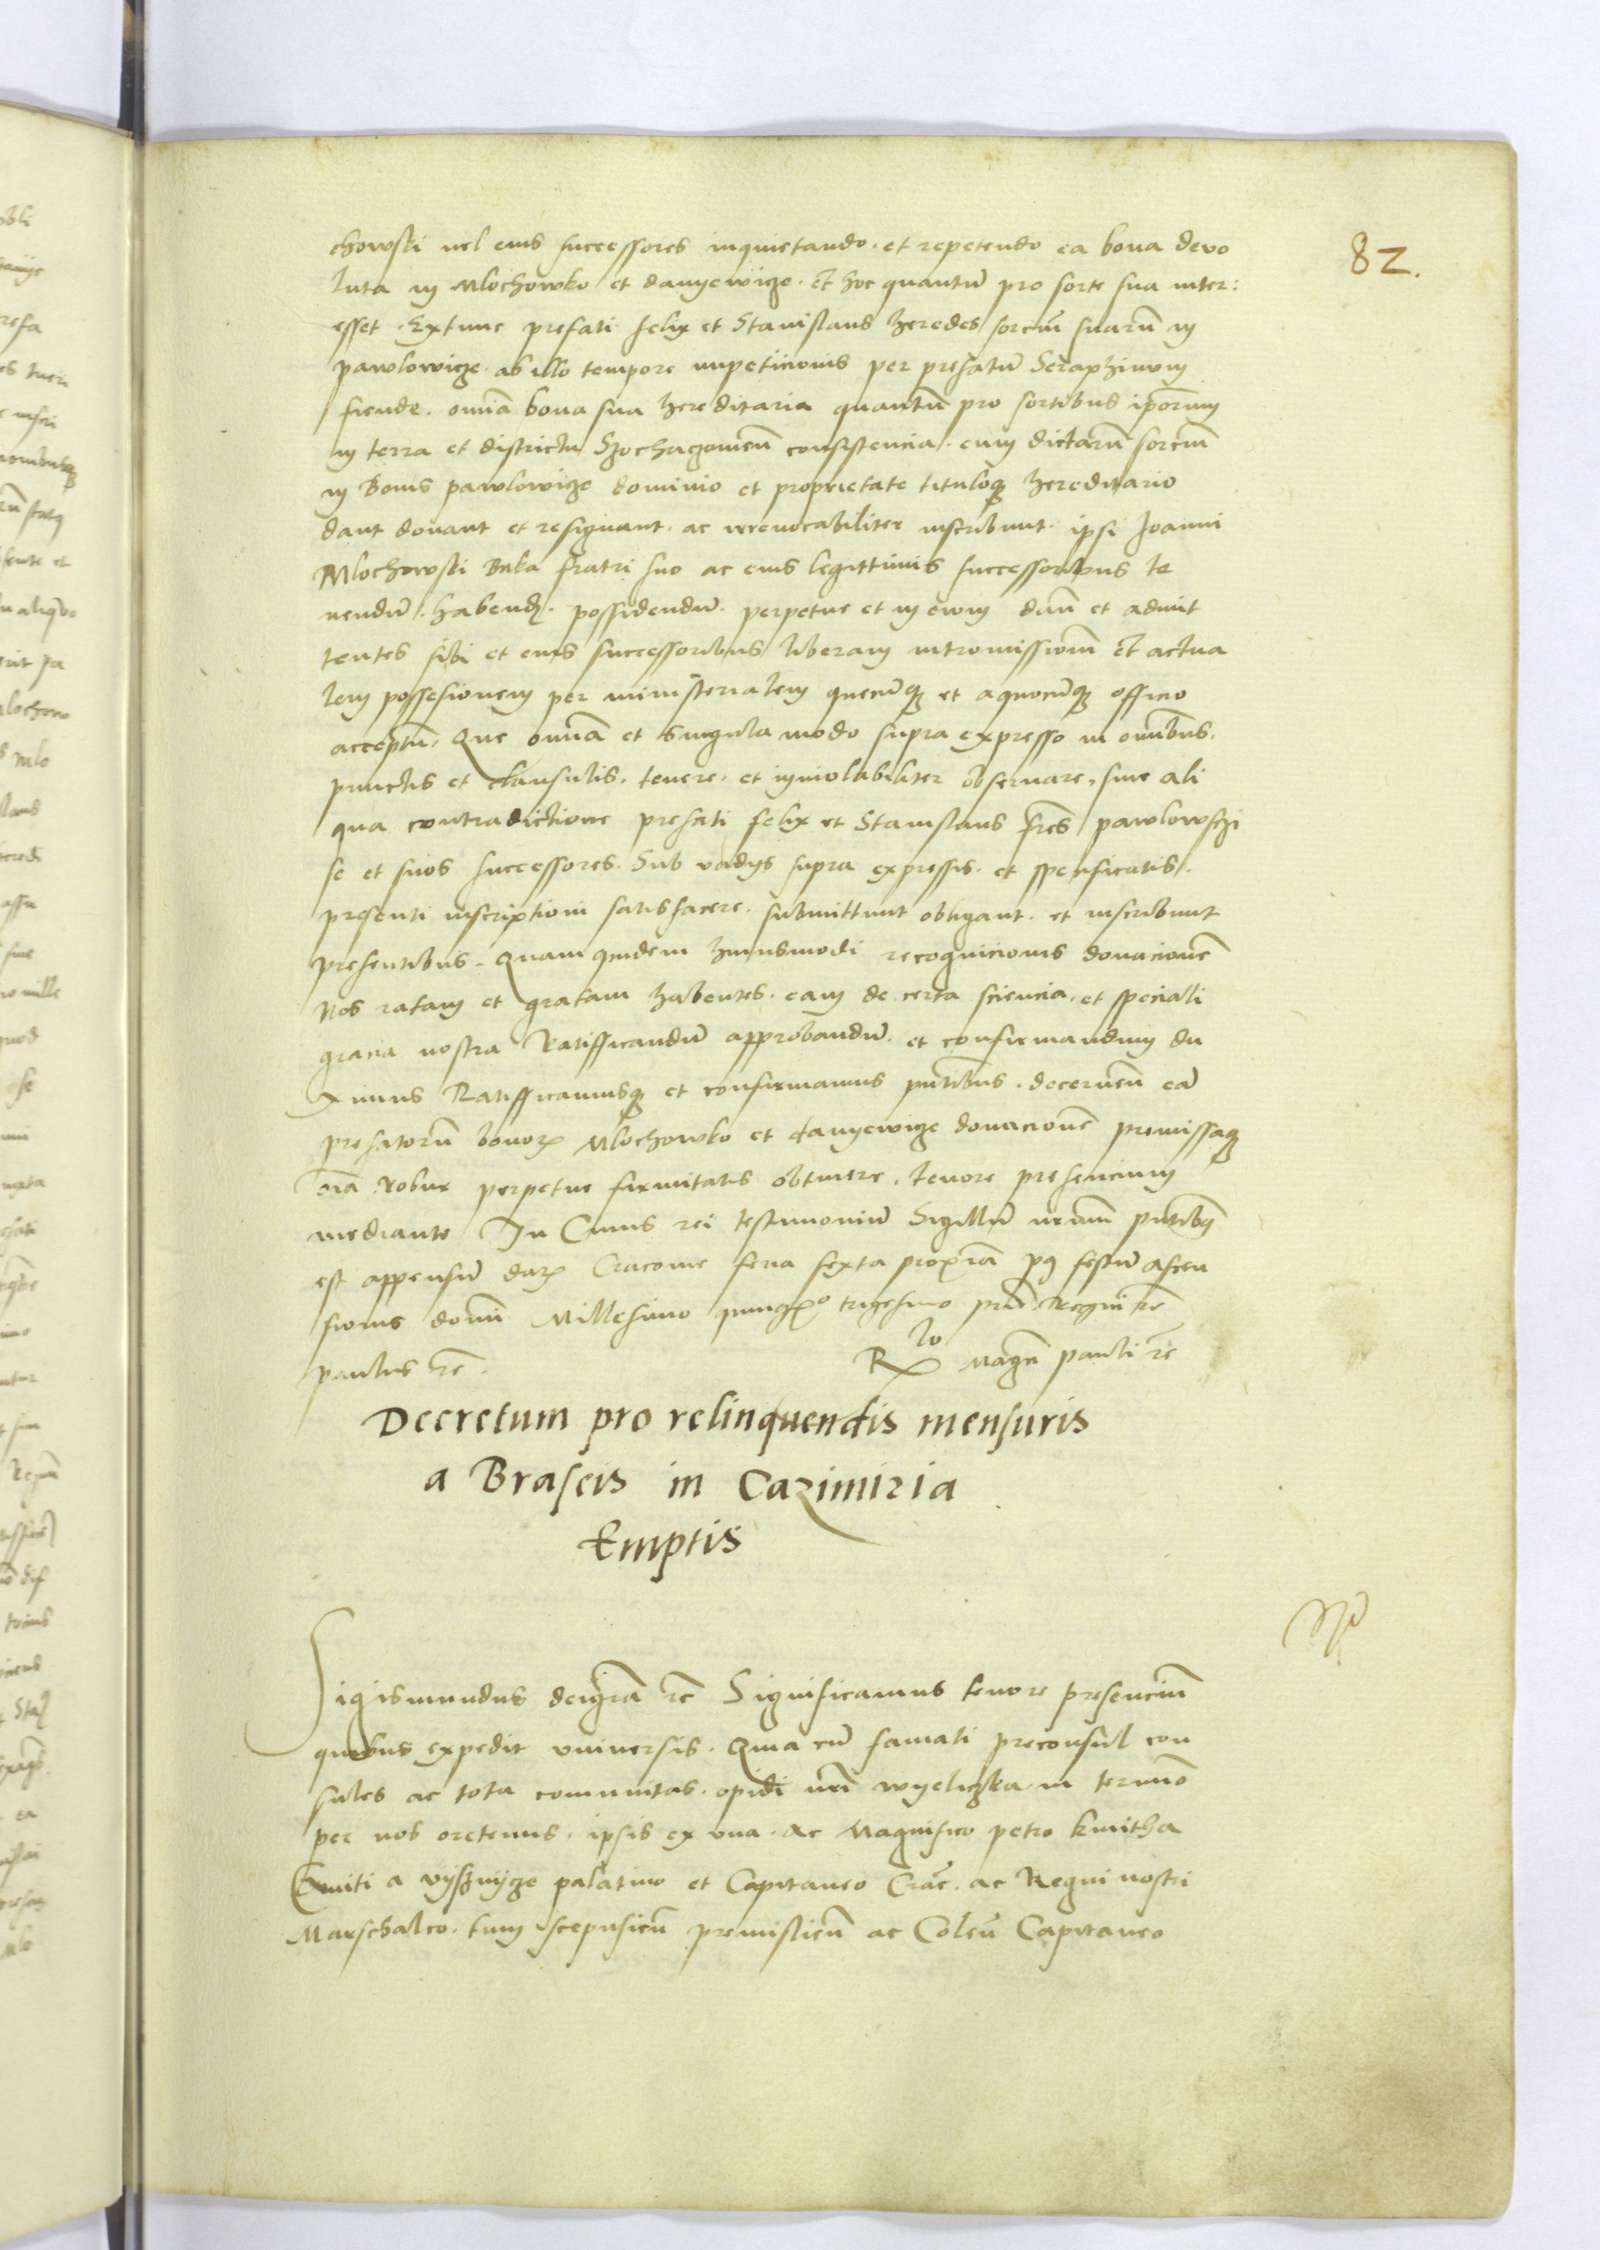 82.
chowski vel eius successores inquietando. et repetendo ea bona devo
luta in Mlochowko et danyewicze. Et hoc quantum̄ pro sorte sua inter:
esset. Extunc prefati felix et Stanislaus heredes sorciū suarū in
pawlowicze. ab illo tempore impeticionis per prefatū Seraphinum
fiende. om̄ia bona sua hereditaria quantū pro sortibus ipsorum
in terra et districtu Szochaczowieñ consistencia. cum dictarū sorciū
in Bonis pawlowicze dominio et proprietate tituloq̨ hereditario
dant donant et resignant. ac irrevocabiliter inscribunt. ipsi Joanni
Mlochowski Buka fratri suo ac eius legittimis successoribus te
nendū. habend̨. possidendū. perpetue et in evum dan̄ et admit
tentes sibi et eius successoribus liberam intromissionē Et actua
lem possesionem per ministerialem quecūq̨ et aquocūq̨ officio
acceptū. Que om̄ia et singula modo supra expresso in om̄ibus.
punctis et clausulis. tenere. et inviolabiliter observare, sine ali
qua contradictione prefati felix et Stanislaus fr̄es pawlowsczi
se et suos successores. Sub vadys supra expressis. et specificatis.
presenti inscriptioni satisfacere. submittunt obligant. et inscribunt
presentibus. Quam quidem huiusmodi recognicionis donacionē
Nos ratam et gratam habentes. eam de certa sciencia. et speciali
gracia nostra Ratifficandū approbandū. et confirmandum du
ximus Ratifficamusq̨ et confirmamus pn̄tibus. decernen̄ eā
prefatorū bonor̨ Mlochowko et danyewicze donacionē premissaq̨
oīa robur perpetue firmitatis obtinere. tenore presencium
mediante In Cuius rei testimoniū Sigillū nr̄um pn̄tibus
est appensū dat̨ Cracovie feria sexta proxīa p9 festū ascen
sionis domi Millesimo quing^o trigesimo prīo Regni rc̄
paulus rc̄.
R^lo Magci pauli rc̄
Decretum pro relinquendis mensuris
a Braseis in Cazimiria
Emptis
Sigismundus dei gr̄a rc̄ Significamus tenore presenciū
quibus expedit universis. Quia cū famati preconsul con
sules ac tota comunitas. opidi nr̄i wyeliczka in termīo
per nos oretenus. ipsis ex una. ac Magnifico petro kmitha
Comiti a vyssnycze palatino et Capitaneo Crac̄. ac Regni nostri
Marschalco. tum scepusieñ premislieñ ac Coleñ Capitaneo